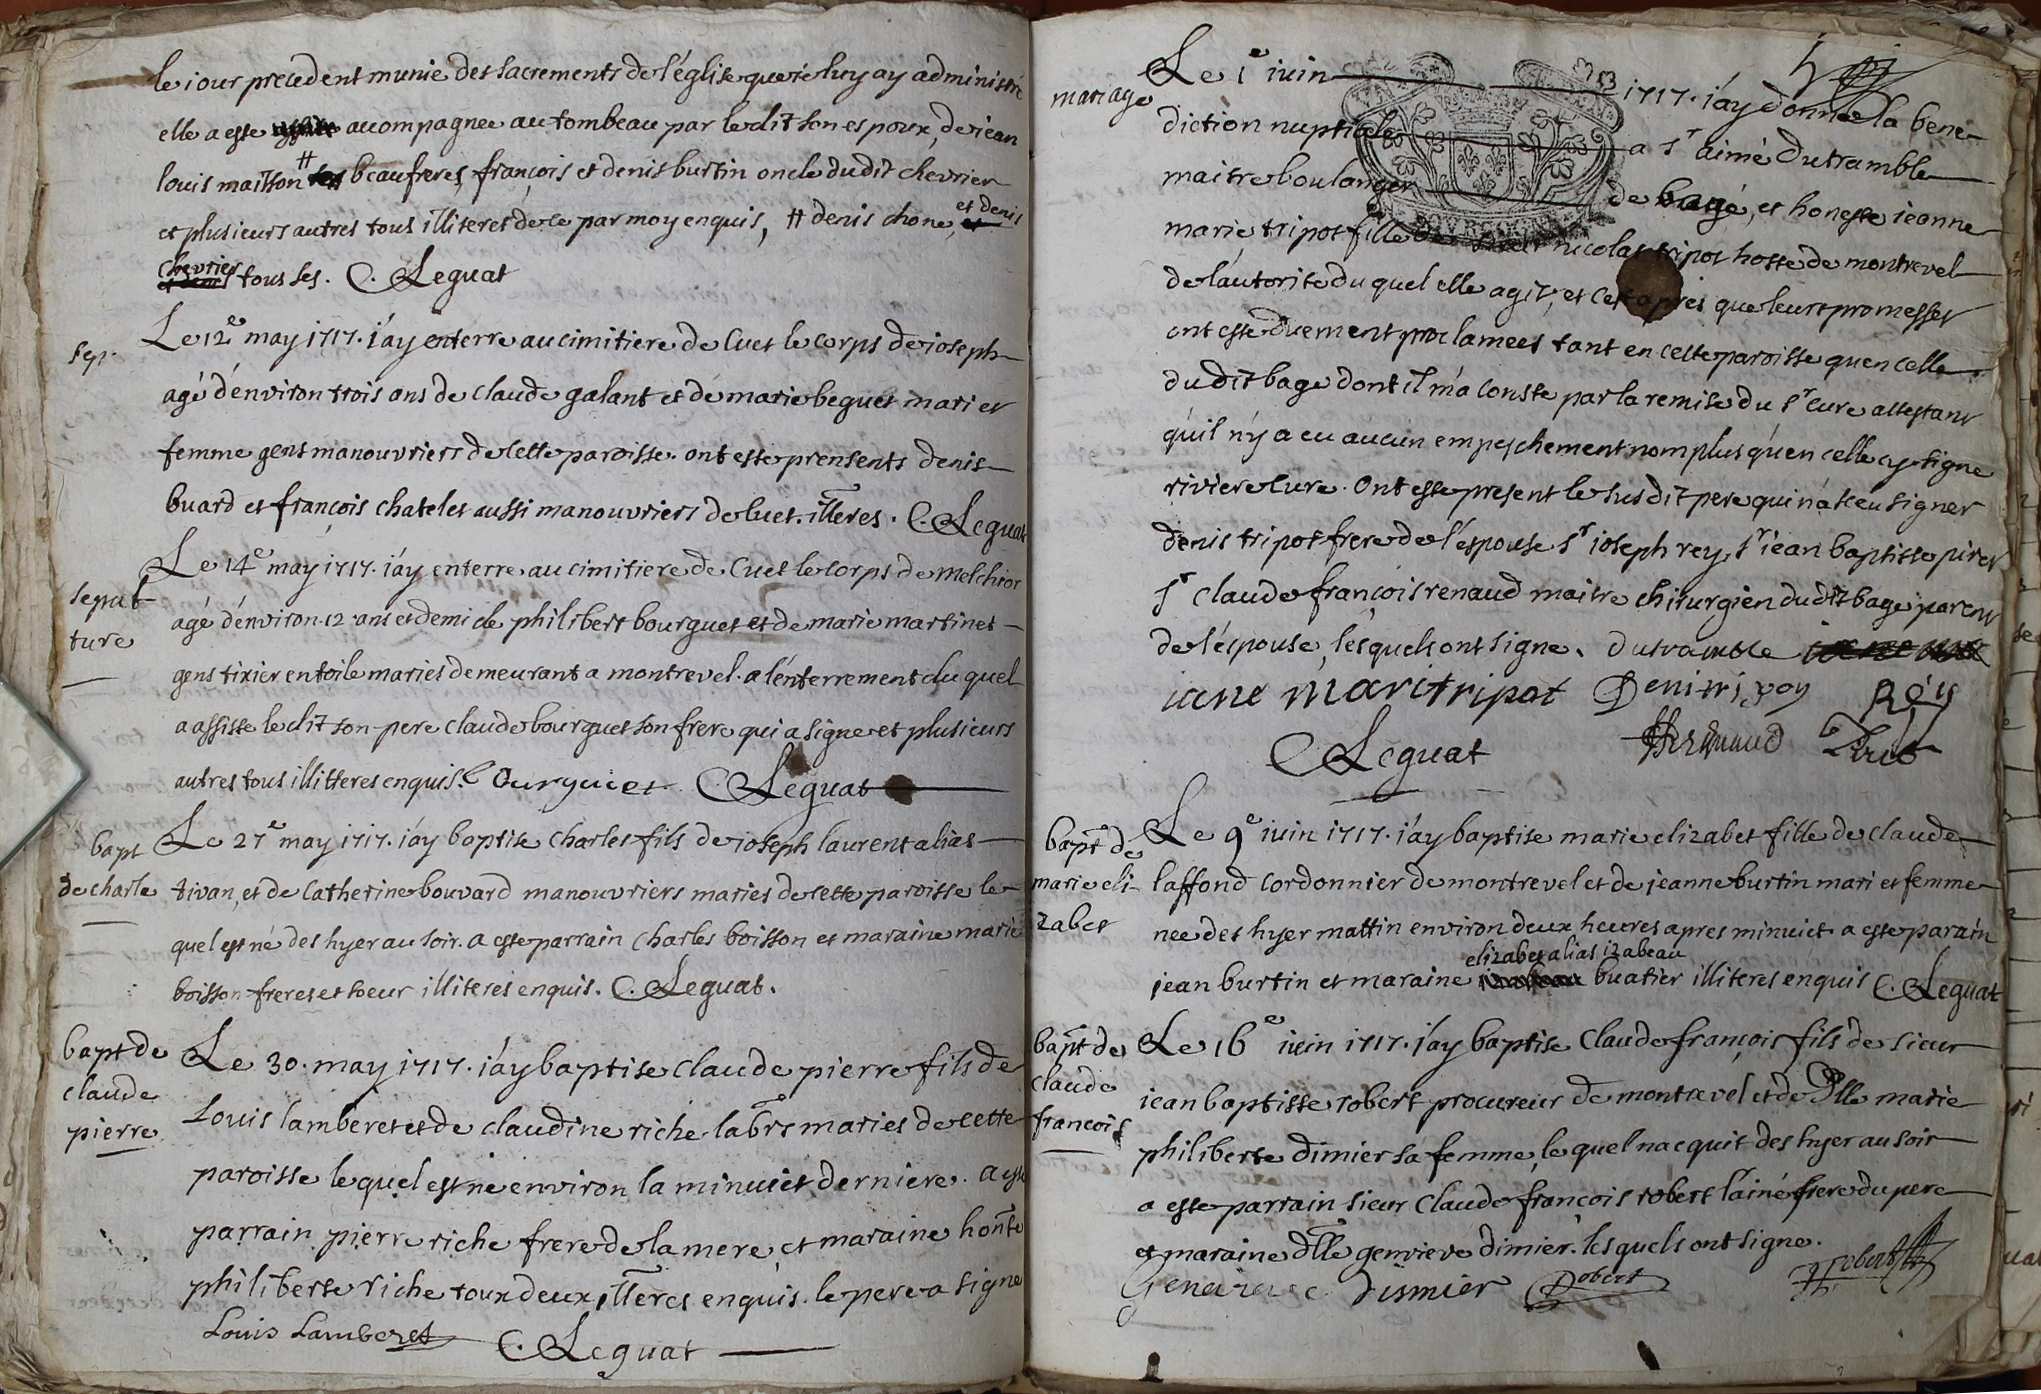 le iour precedent munie des sacrements de l'église que ie luy ay administré
elle a esté accompagnee au tombeau par le dit son espoux, de iean
louis maitson # beaufreres, françois et denis burtin oncle du dit chevrier
et plusieurs autres tous illiteres de ce par moy enquis, # denis chone, et denis
chevrier tous ses. C. Leguat
sep.
Le 12e may 1717. i'ay enterre au cimitiere de Cuet le corps de ioseph
agé d'environ trois ans de claude galant et de marie beguet mari et
femme gens manouvriers de cette paroisse. ont esté prensents denis
buard et françois chatelet aussi manouvriers de Cuet. illeres. C. Leguat
sepul
ture
Le 14e may 1717. i'ay enterre au cimitiere de Cuet le corps de Melchior
agé d'environ 12 ans et demi de philibert bourguet et de marie martinet
gens tixier en toile maries demeurant a montrevel. a l'enterrement du quel
a assisse le dit son pere claude bourguet son frere qui a signe et plusieurs
autres tous illitteres enquis. bourguiet C. Leguat
bapt
de charle
Le 27e may 1717. i'ay baptise charles fils de ioseph laurent alias
tivan, et de Catherine bouvard manouvriers maries de cette paroisse le
quel est né des hyer au soir. a esté parrain charles boisson et maraine marie
boisson freres et soeur illiteres enquis. C. Leguat.
bapt de
claude
pierre
Le 30. may 1717. i'ay baptise claude pierre fils de
Louis lamberet et de claudine riche labrs maries de cette
paroisse le quel est né environ la minuict derniere. a esté
parrain pierre riche frere de la mere, et maraine honte
philiberte riche toux deux illeres enquis. le pere a signe
Louis Lamberet C. Leguat
mariage
Le 1e iuin 1717. i'ay donne la bene
diction nuptiale a sr aimé Dutramble
maitre boulanger de bagé, et honeste ieanne
marie tripot fille de nicolas tripot hoste de montrevel
de l'autorite du quel elle agit, et ce apres que leurs promesses
ont esté duement proclamees tant en cette paroisse qu'en celle
du dit bage dont il m'a conste, par la remise du sr cure attestant
qu'il n'y a eu aucun empeschement nom plus qu'en celle cy signe
riviere cure. Ont esté present le susdit pere qui n'a sceu signer
denis tripot frere de l'espouse sr ioseph rey, sr iean baptiste piret
sr claude françois renaud maitre chirurgien du dit bage parent
de l'espouse, lesquels ont signe. dutramble
iane maritripot Denitripoy Rey
C. Leguat
bapt de
marie eli
zabet
Le 9e iuin 1717. i'ay baptise marie elizabet fille de claude
laffond cordonnier de montrevel et de jeanne burtin mari et femme
nee des hyer mattin environ deux heures apres minuict a esté parain
jean burtin et maraine elizabet alias izabeau buatier illiteres enquis C. Leguat
bapt de
claude
francois
Le 16e iuin 1717. i'ay baptise Claude françois fils de sieur
iean baptiste robert procureur de montrevel et de Dlle marie
philiberte dimier sa femme, le quel nacquit des hyer au soir
a esté parrain sieur Claude françois robert l'ainé frere du pere
et maraine dlle genvieve dimier. lesquels ont signe.
Dismier Robert Robert